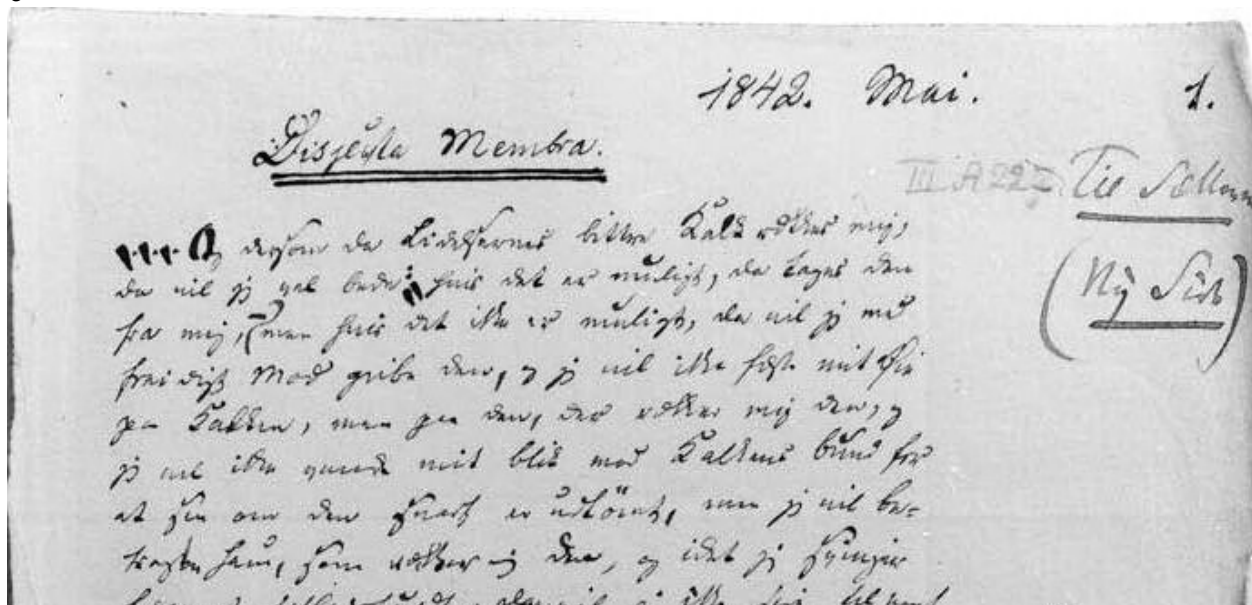 1842. Mai. 1.
Disjecta Membra.
III A 222 Til Sætteren
(Ny Side)
Og dersom da Lidelsernes bittre Kalk rækkes mig,
da vil jeg vel bede: hvis det er muligt, da tages den
fra mig, (men hvis det ikke er muligt, da vil jeg med
freidigt Mod gribe den, og jeg vil ikke fæste mit Øie
paa Kalken, men paa den, der rækker mig den, og
jeg vil ikke vende mit blik mod Kalkens bund for
at see om den snart er udtömt, men jeg vil be-
tragte ham, som rækker mig den, og idet jeg svinger